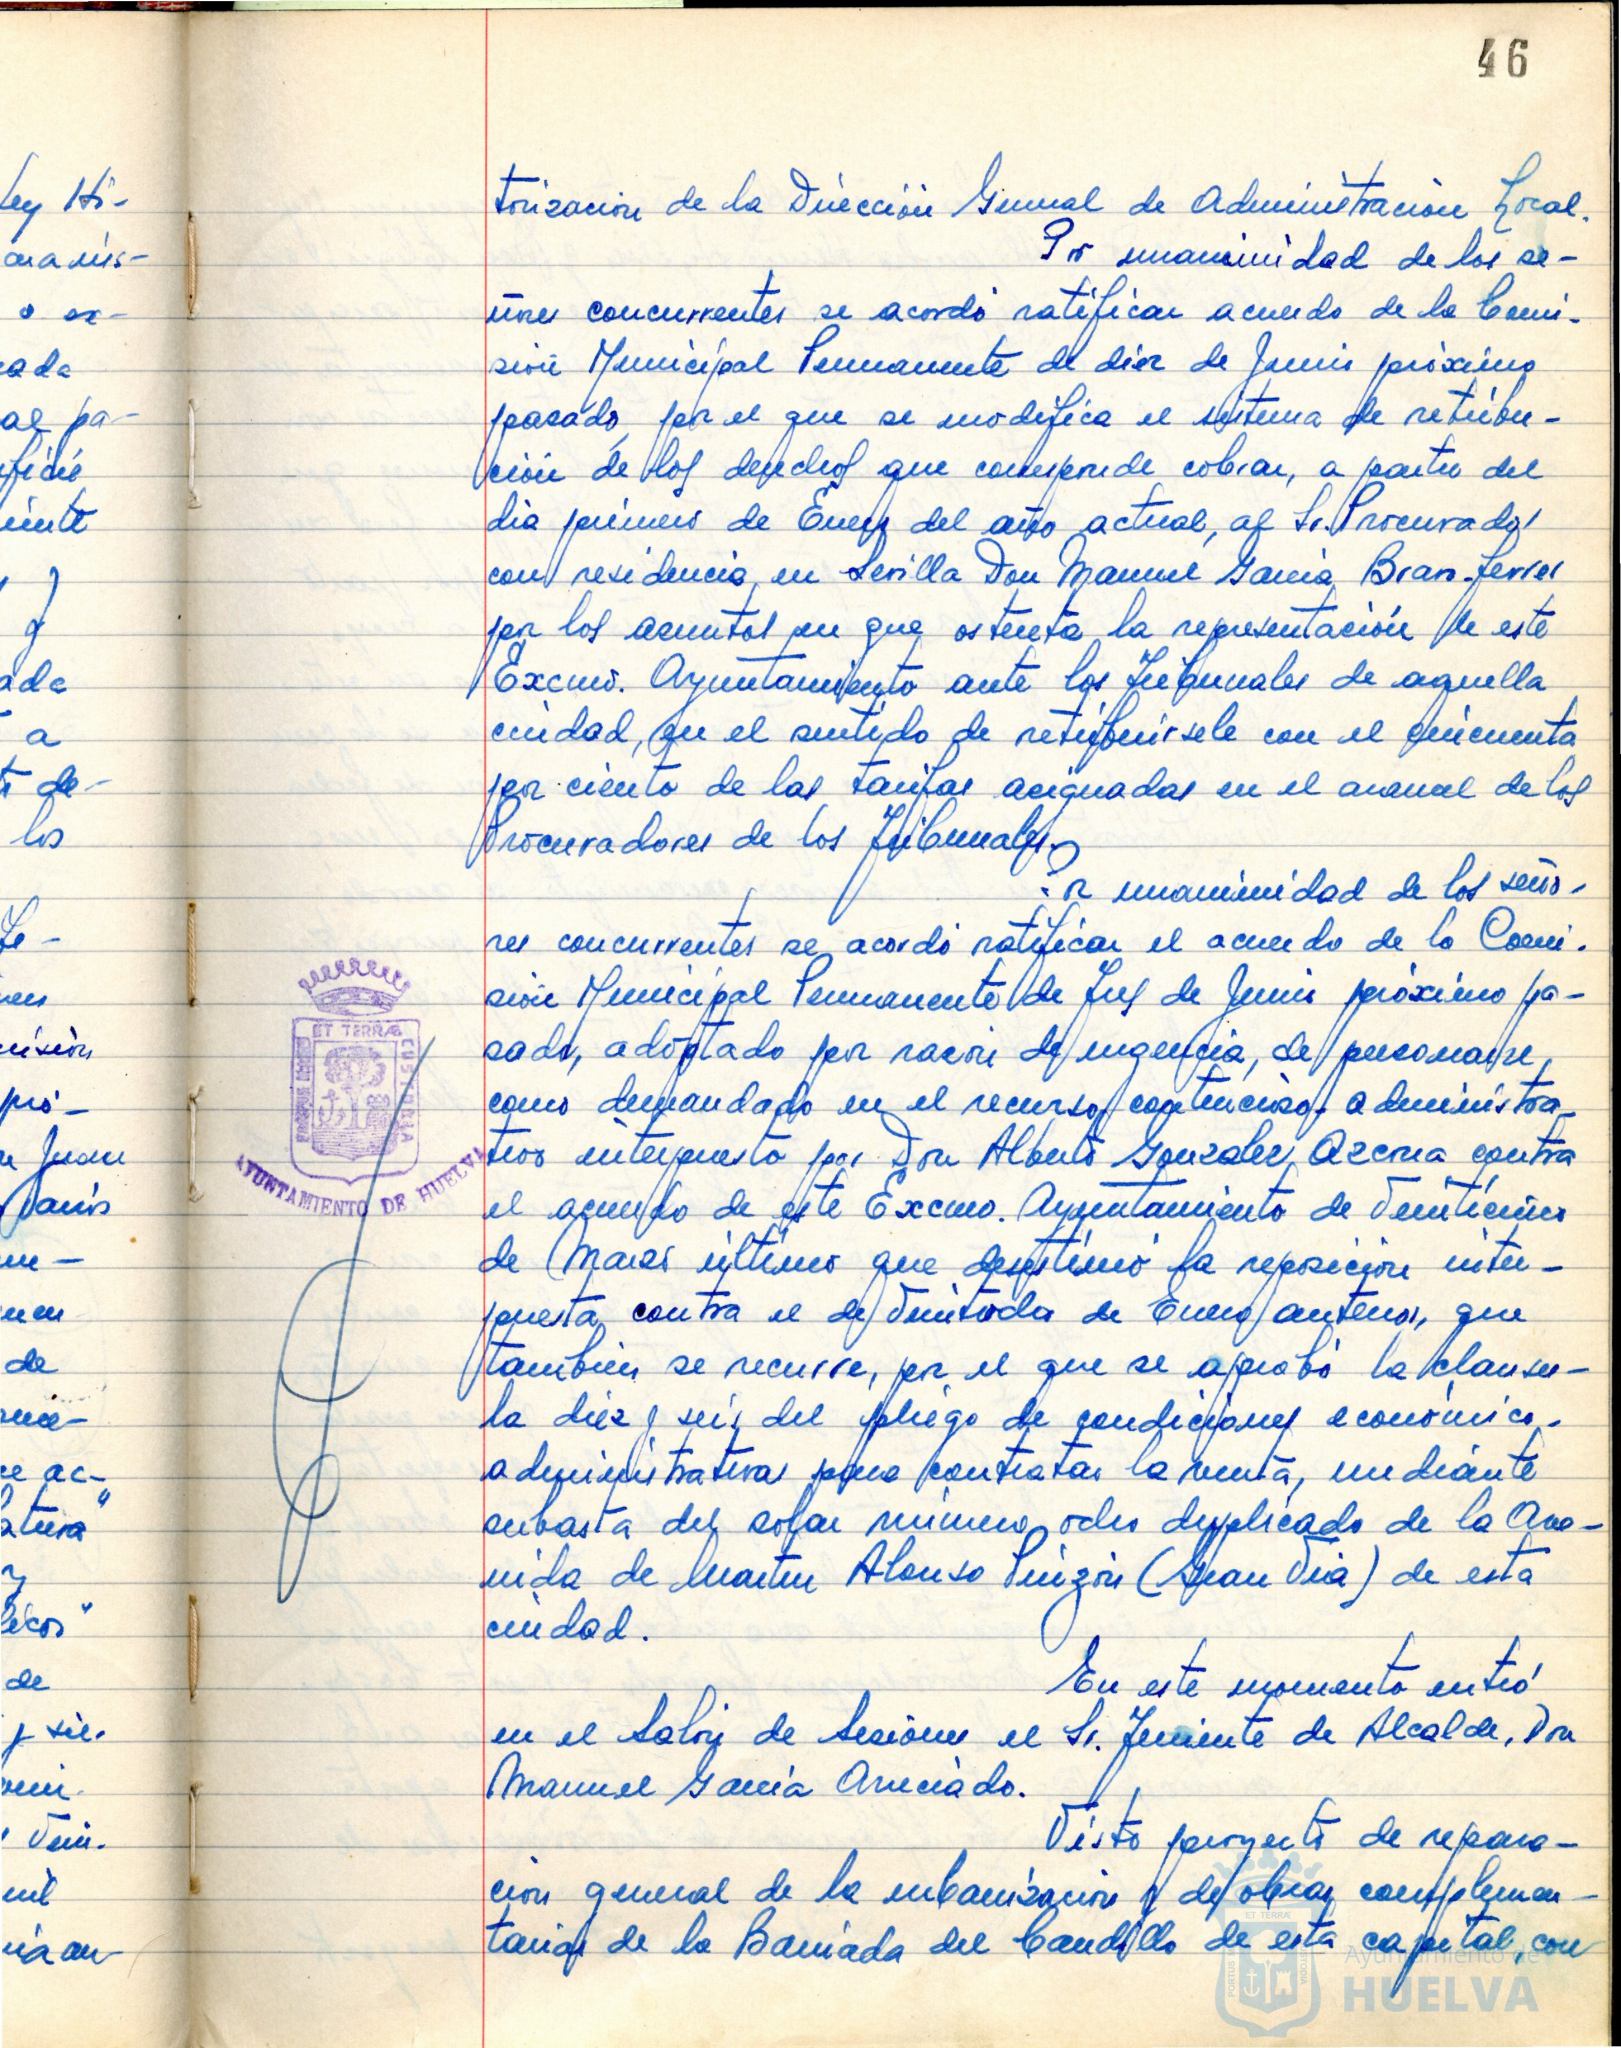 46
torizacion de la Dirección General de Administración Local.
Por unanimidad de los se-
ñores concurrentes se acordó ratificar acuerdo de la Comi-
sión Municipal Permanente de diez de Junio próximo
pasado, por el que se modifica el sistema de retribu-
ción de los derechos que corresponde cobrar, a partir del
dia primero de Enero del año actual, al Sr. Procurador
con residencia en Sevilla Don Manuel Garcia Bravo-Ferrer
por los asuntos en que ostenta la representación de este
Excmo. Ayuntamiento ante los Tribunales de aquella
ciudad, en el sentido de retribuirsele con el cincuenta
por ciento de las tarifas asignadas en el arancel de los
Procuradores de los Tribunales.
Por unanimidad de los seño-
res concurrentes se acordó ratificar el acuerdo de la Comi-
sión Municipal Permanente de tres de Junio próximo pa-
sado, adoptado por razon de urgencia, de personarse
como demandado en el recurso contencioso-administra-
tivo interpuesto por Don Alberto Gonzalez Azcona contra
el acuerdo de este Excmo. Ayuntamiento de Veinticinco
de Marzo último que desestimó la reposición inter-
puesta contra el de Veintiocho de Enero anterior, que
tambien se recurre, por el que se aprobó la clausu-
la diez y seis del pliego de condiciones economico-
administrativas para contratar la venta, mediante
subasta del solar número ocho duplicado de la Ave-
nida de Martin Alonso Pinzón (Gran Via) de esta
ciudad.
En este momento entró
en el Salón de Sesiones el Sr. Teniente de Alcalde, Don
Manuel Garcia Aruciado.
Visto proyecto de repara-
cion general de la urbanizacion y de obras complemen-
tarias de la Barriada del Caudillo de esta capital, con
ET TERRÆ
CUSTODIA
AYUNTAMIENTO DE HUELVA
Ley Hi-
o ex-
ada
al pa-
ada
a
de-
los
misión
pró-
n Juan
de
ce ac-
atura"
de
y sie-
Vein-
mil
ET TERRÆ
PORTUS
CUSTODIA
Ayuntamiento de
HUELVA